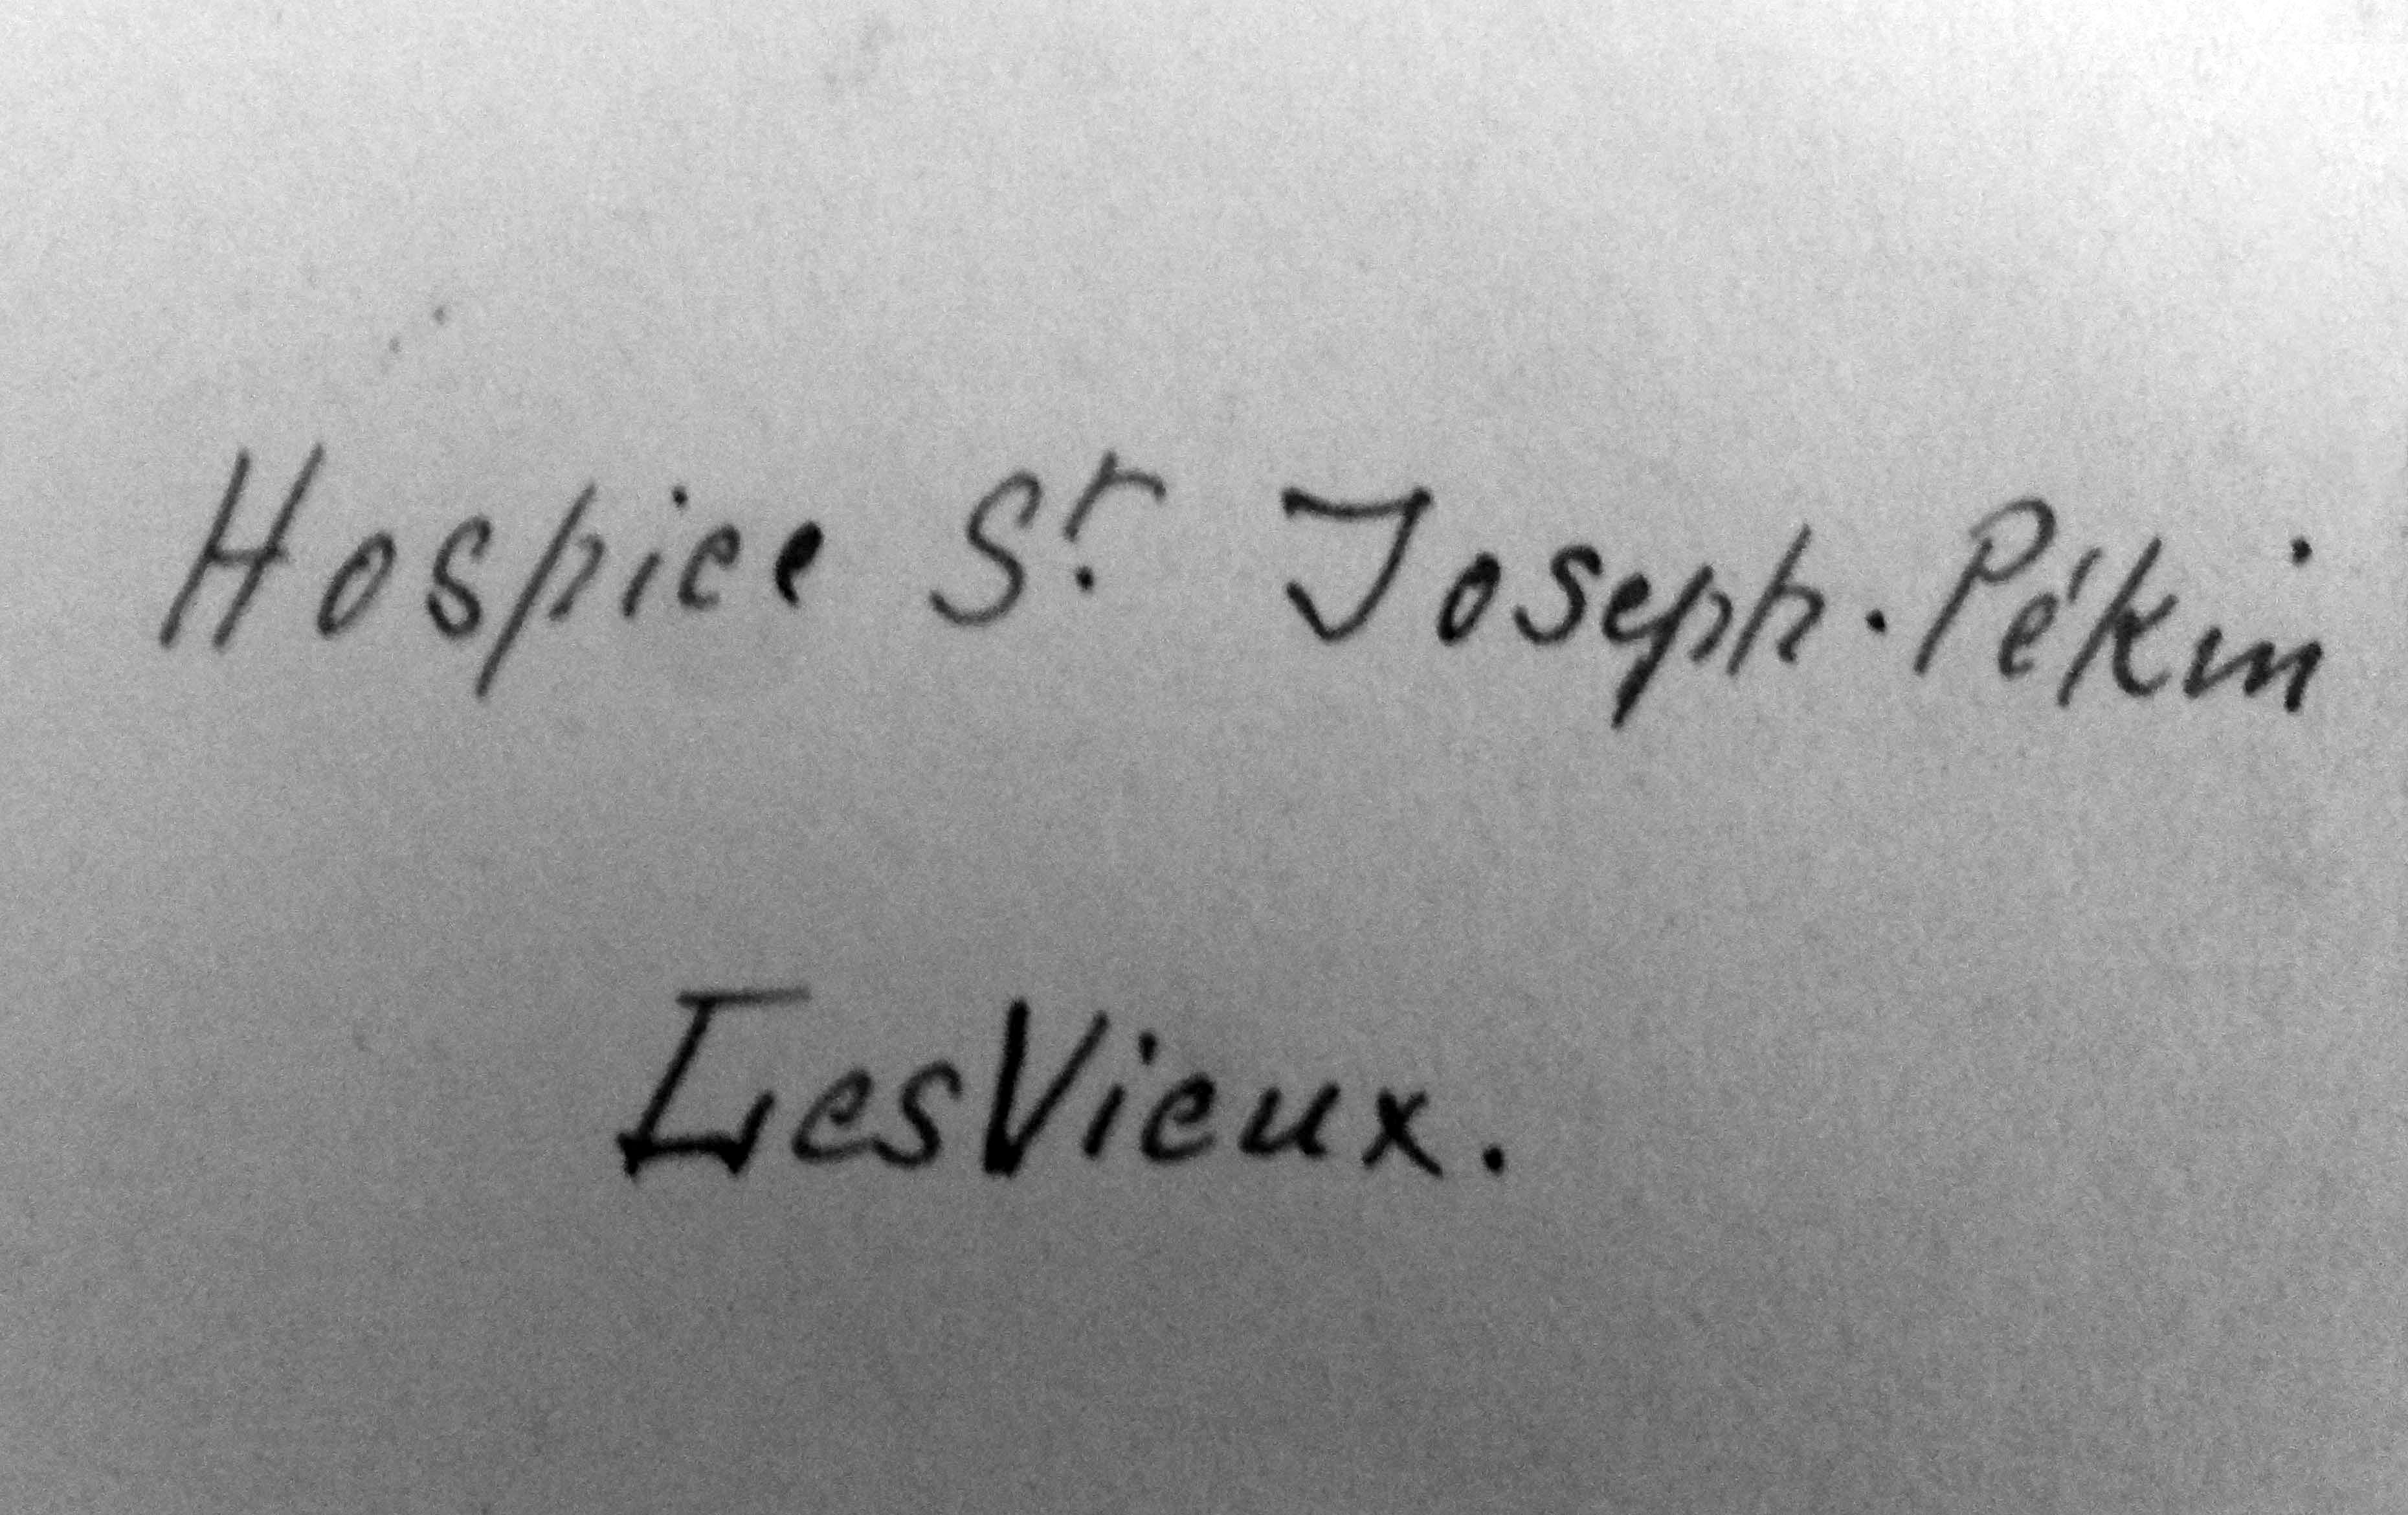 Hospice St. Joseph. Pékin
Les Vieux.